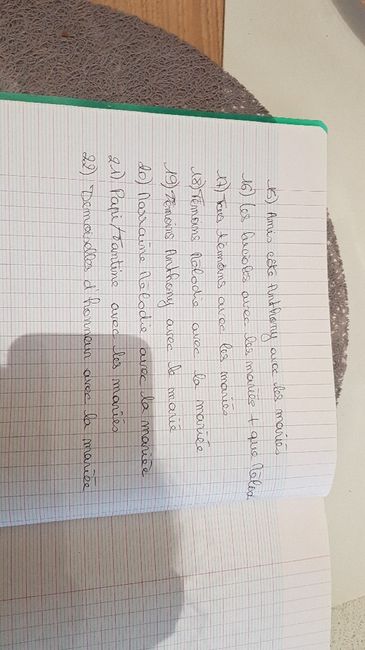 15) Amis côté Anthony avec les mariés
16) Les avec les mariés + que
17) Tous témoins avec les mariés
18) Témoins Mélodie avec la mariée
19) Témoins Anthony avec le marié
20) Marraine Mélodie avec la mariée
21) Papi/Tantine avec les mariés
22) Demoiselles d'honneur avec la mariée